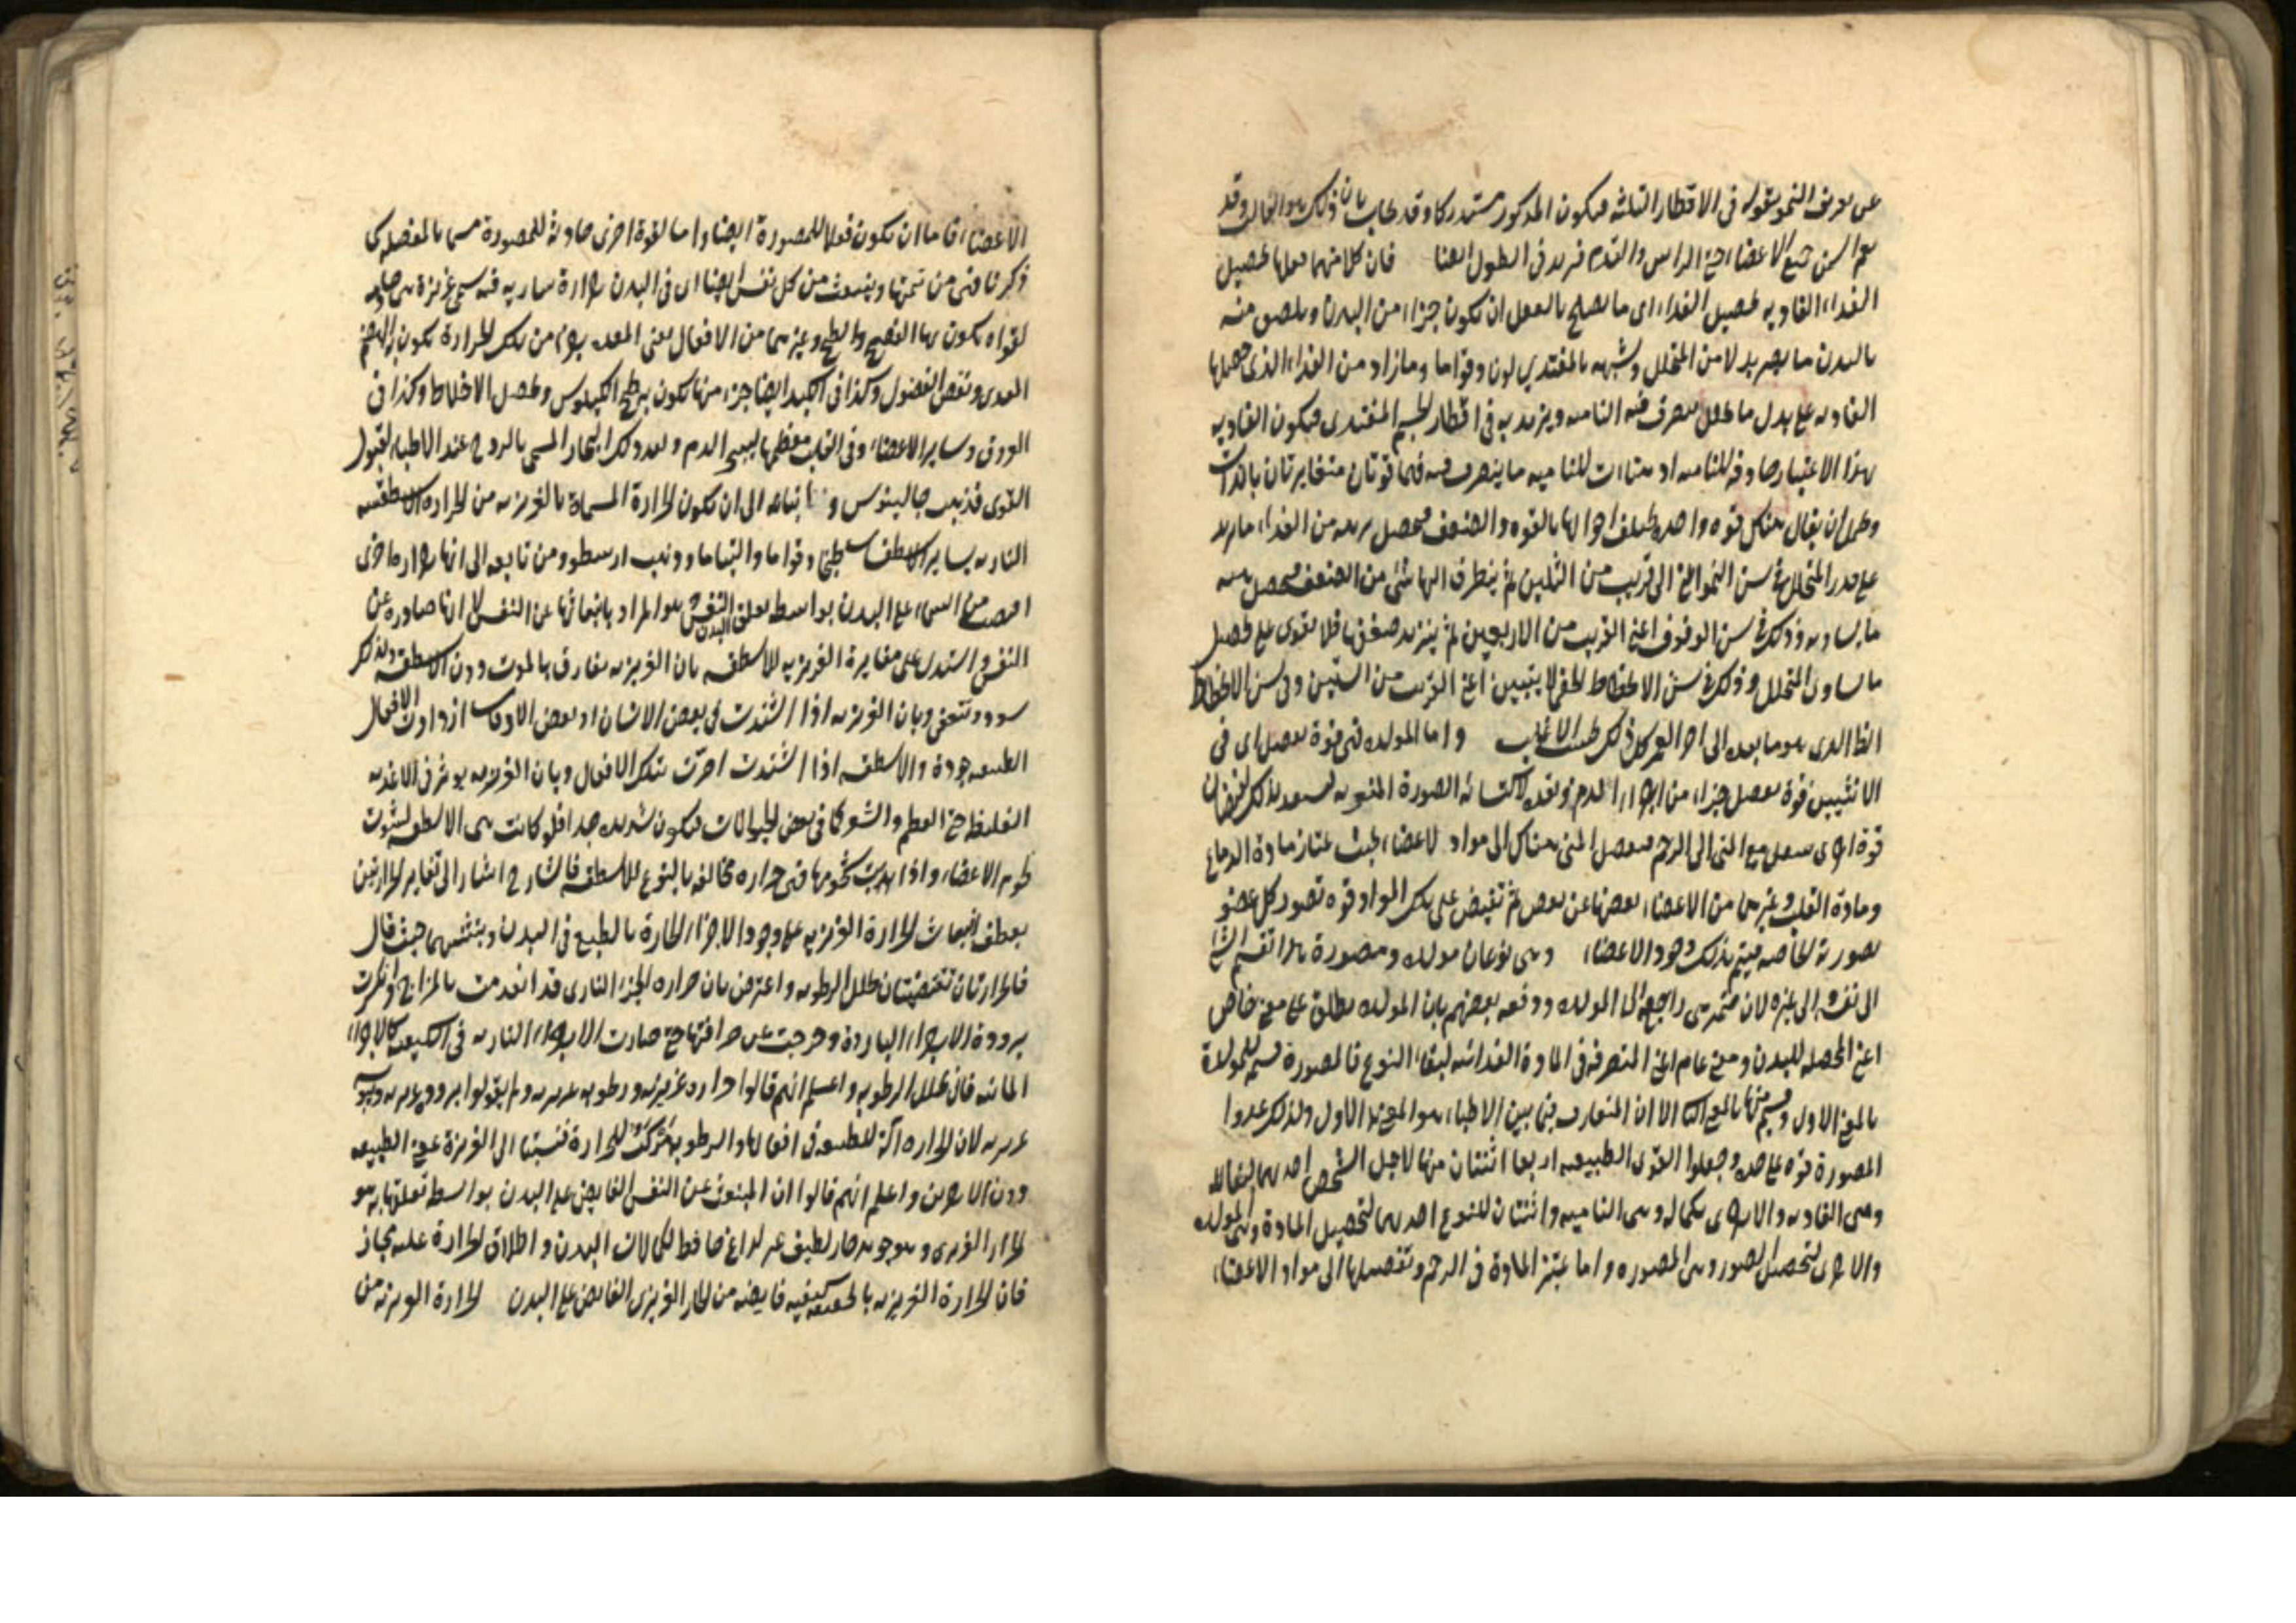 عن تعريف النمو بقوله فى الاقطار الثلثه فيكون المذكور مستدركا وقد يجاب بان ذلك هو الغالب وقد
يعم السمن جميع الاعضا حتى الراس والقدم فيزيد فى الطول ايضا فان كلا منهما فعلها تحصيل
الغذاء الغاديه تحصيل الغذاء اى ما يصلح بالفعل ان يكون جزءا من البدن ويلصق منه
بالبدن ما يصير بدلا من المتحلل وشبهه بالمغتدي لون وقواما وما زاد من الغذاء الذى حصلها
الغاديه على بدل ما تحلل يتصرف فيه الناميه ويزيد به فى اقطار الجسم المغتدى فيكون الغاديه
بهذا الاعتبار خادمه للناميه اذ هيئات للناميه ما يتصرف فيه فهما قوتان متغايرتان بالذات
ويحتمل ان يقال هناك قوه واحده يختلف احوالها بالقوه والضعف فيحصل برهه من الغذاء ما يزيد
على قدر المتحلل فى سن النمو الى قريب من الثلثين ثم يتطرق اليها شئ من الضعف فيحصل منه
ما يساويه وذلك فى سن الوقوف اعنى القريب من الاربعين ثم يتزيد ضعفها فلا يقوى على تحصيل
ما يساوى المتحلل وذلك فى سن الانحطاط الخفى لا يتبين اعنى القريب من الستين وفى سن الانحطاط
الظاهر الذى هو ما بعده الى اخر العمر كل ذلك بحسب الاغلب واما المولده فهى قوة تفصل اى فى
الانثيين قوة تفصل جزءا من اجزاء الدم وتعده لاكتسائه الصورة المنويه
قوة اخرى تنتقل مع المنى الى الرحم فيفصل المنى هناك الى مواد لاعضاء بحيث يمتاز مادة الدماغ
ومادة القلب وغيرهما من الاعضاء بعضها عن بعض ثم تفيض على تلك المواد قوه تصور كل عضو
بصورته الخاصه فيتم بذلك وجود الاعضاء وهى نوعان مولده ومصورة هذا تقسيم الشئ
الى نفسه والى غيره لان راجعه الى المولده ودفعه بعضهم بان المولده يطلق على معنى خاص
اعنى المحصله للبدن ومعنى عام اعنى المتصرفه فى المادة الغدائيه لبقاء النوع فالمصورة قسيم للمولدة
بالمعنى الاول وقسم منها بالمعنى الثانى الا ان المتعارف فيما بين الاطباء هو المعنى الاول ولذلك عدوا
المصورة قوه على حده وجعلوا القوى الطبيعيه اربعا اثنتان منها لاجل الشخص احدهما لبقائه
وهى الغاديه والاخرى لكماله وهى الناميه واثنتان للنوع احدهما لتحصيل المادة وهى المولده
والاخرى لتحصيل الصور وهى المصوره واما تميز المادة فى الرحم وتفصيلها الى مواد الاعضاء
الاعضاء فاما ان يكون فعلا للمصورة ايضا واما لقوة اخرى خادمة للمصورة مسماة بالمفصله كما
ذكرنا فهى من تتمتها وينبعث من كل نفس ايضا اى فى البدن حرارة ساريه فيه تسمى غريزة هى خادمه
لقواه يكون بها النضج والطبخ وغيرهما من الافعال يعنى المعده جزء من تلك الحرارة يكون به الهضم
المعدى ونقص الفضول وكذا فى الكبد ايضا جزء منها يكون به طبخ الكيلوس وتحصل الاخلاط وكذا فى
العروق وساير الاعضاء وفى القلب معظمها لينضج الدم ويعد ذلك البخار المسمى بالروح عند الاطباء لقبول
القوى فذهب جالينوس و اتباعه الى ان يكون الحرارة المسماة بالغريزيه من الحرارة الاسطقسيه
الناريه بساير الاسطقسات طبخا وقواما والتياما وذهب ارسطو ومن تابعه الى انها حرارة اخرى
افيضت من السماء على البدن بواسطه تعلق النفس البدن هو المراد بانبعاثها عن النفس لا انها صادره عن
النفس واستدل على مغايرة الغريزيه للاسطقسيه بان الغريزيه يفارق بالموت دون الاسطقسيه ولذلك
يسود ويتعفن وبان الغريزيه اذا اشتدت فى بعض الاسنان او بعض الاوقات ازدادت الافعال
الطبيعيه جودة والاسطقسيه اذا اشتدت اضرت بتلك الافعال وبان الغريزيه يوثر فى الاغذيه
الغليظه حتى العظم والشوكا فى بعض الحيوانات فيكون شديده جدا فلو كانت هى الاسطقسيه لشوت
لحوم الاعضاء واذا بت شحومها فهى حراره مخالفه بالنوع للاسطقسيه فالشارح اشار الى تغاير الحرارتين
بعطف انبعاث الحرارة الغريزيه على وجود الاجزاء الحارة بالطبع فى البدن وتثنيتهما حيث قال
فالحرارتان تقتضيان تحلل الرطوبه واعترض بان حراره الجزء النارى قد انعدمت بالمزاج وانكسرت
ببرودة الاجزاء الباردة وخرجت عن صرافتها حتى صارت الاجزاء الناريه فى الكيفيه كالاجزاء
المائيه فانى تحلل الرطوبه واعلم انهم قالوا حراره غريزيه ورطوبه غريزيه ولم يقولوا برودة غريزيه ويبوسه
غريزيه لان الحراره آلة للطبيعه فى افعالها والرطوبه مركب للحرارة فنسبتا الى الغريزة عنى الطبيعه
دون الاخريين واعلم انهم قالوا ان المنبعث عن النفس الفايض على البدن بواسطه تعلقها به هو
الحار الغريزى وهو جوهر حار لطيف غير لداغ حافظ لكمالات البدن واطلاق الحرارة عليه مجاز
فان الحرارة الغريزيه بالحقيقه كيفيه فايضه من الحار الغريزى الفايض على البدن الحرارة الغريزيه من